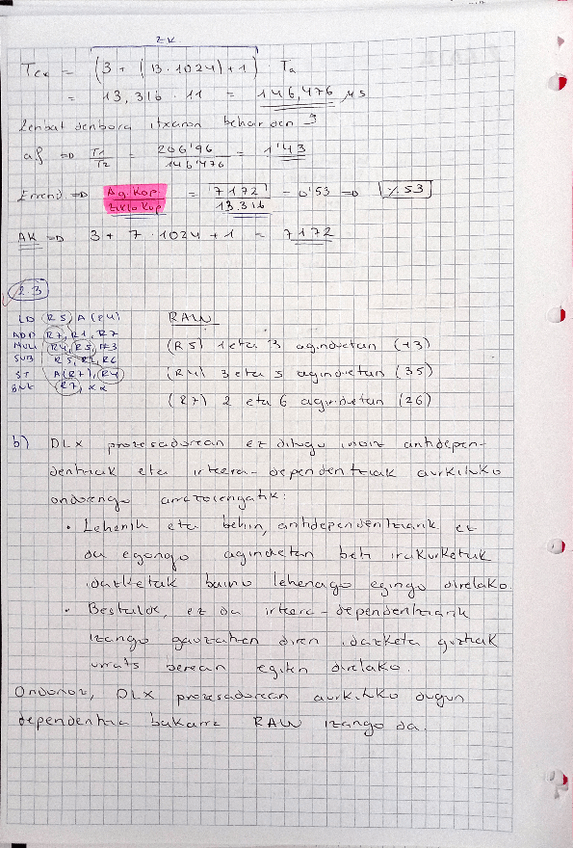 ZK
Tex = (3 + (13·1024)+1) · Ta
= 13,316 · 11 = 146,476 μs
Zenbat denbora itxaron behar den?
af => T1/T2 = 206'96/146'476 = 1'43
Errend => Ag.Kop/Ziklo Kop = 7172/13.316 - 0'53 => %53
AK => 3 + 7·1024 + 1 = 7172
2.3
LD (R5) A(R4)
ADD R7, R1, R7
MULI R4, R5, #3
SUB R5, R6
ST A(R7), R4
BNE (R7), xx
RAW
(R5) 1 eta 3 aginduetan (13)
(R4) 3 eta 5 aginduetan (35)
(R7) 2 eta 6 aginduetan (26)
b) DLX prozesadorean ez ditugu inoiz antidepen-
dentziak eta irteera-dependentziak aurkituko
ondorengo arrazoiengatik:
• Lehenik eta behin, antidependentziarik ez
da egongo aginduetan beti irakurketak
idazketak baino lehenago egingo direlako.
• Bestalde, ez da irteera-dependentziarik
izango gauzatzen diren idazketa guztiak
urrats berean egiten direlako.
Ondorioz, DLX prozesadorean aurkituko dugun
dependentzia bakarra RAW izango da.